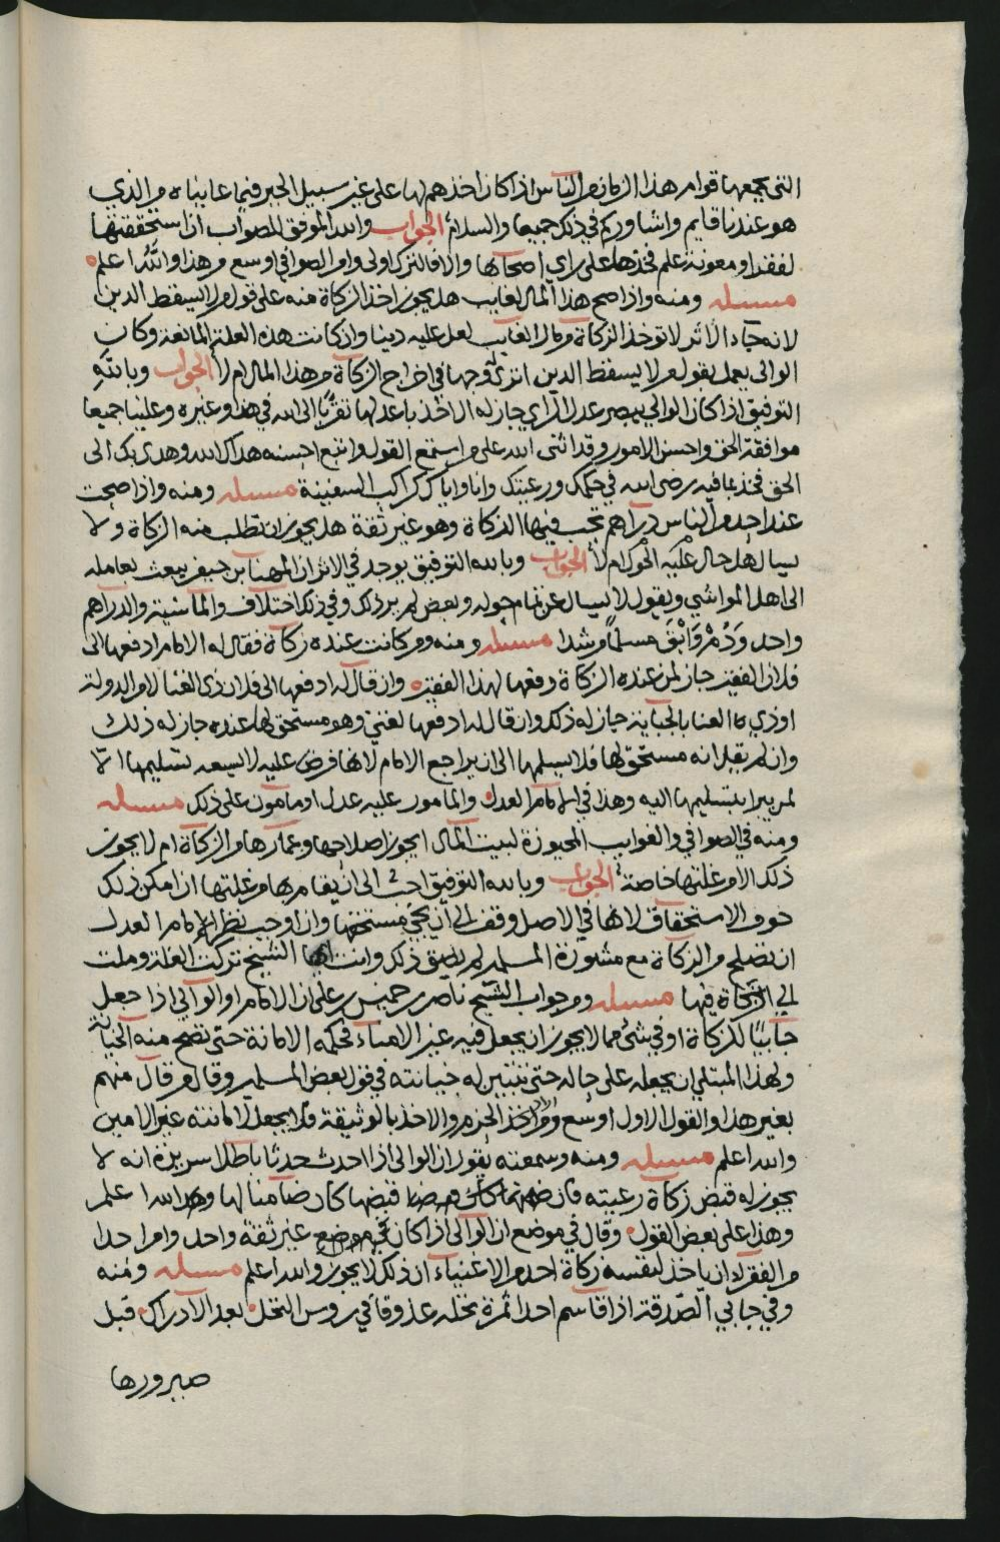 التي يجمعها قوام هذا الزمان من الناس اذا كان اخذهم لها على غير سبيل الجبر فيما عايناه من الذي
هو عندنا قايم واشاوركم في ذلك جميعا والسلام الجواب والله الموفق للصواب ان استحققتها
لفقر او معونة علم فخذها على راي اصحابها والا فالترك اولى وامر الصوافي اوسع من هذا والله اعلم
مسئله ومنه واذا صح هذا المال لغايب هل يجوز اخذ الزكاة منه على قول من لا يسقط الدين
لانه جاء الاثر لا توخذ الزكاة من مال الغايب لعل عليه دينا وان كانت هذه العلة المانعة وكان
الوالي يعمل بقول من لا يسقط الدين اترى له وجها في اخراج الزكاة من هذا المال ام لا الجواب وبالله
التوفيق اذا كان الوالي يبصر عدل الراي جاز له الاخذ باعدلها تقربا الى الله في هذا وغيره وعلينا جميعا
موافقة الحق واحسن الامور وقد اثنى الله على من استمع القول واتبع احسنه هداك الله وهدى بك الى
الحق فخذ بما فيه رضى الله في حكمك ورعيتك وانا واياك كراكب السفينة مسئله ومنه واذا صحت
عند احد من الناس دراهم تجب فيها الزكاة وهو غير ثقة هل يجوز ان تطلب منه الزكاة ولا
يسال هل حال عليه الحول ام لا الجواب وبالله التوفيق يوجد في الاثر ان المهنا بن جيفر يبعث بعامله
الى اهل المواشي ويقول لا يسال عن تمام حوله وبعض لم ير ذلك وفي ذلك اختلاف والماشية والدراهم
واحد ودم وابق مسلما مرشدا مسئله ومنه ومن كانت عنده زكاة فقال له الامام ادفعها الى
فلان الفقير جاز لمن عنده الزكاة دفعها لهذا الفقير وان قال له ادفعها الى فلان ذي الغنا لامر الدولة
او ذي الغنا بالجباية جاز له ذلك وان قال له ادفعها لغني وهو مستحق لها عنده جاز له ذلك
وان لم يقل انه مستحق لها فلا يسلمها الى ان يراجع الامام لانها فرض عليه لا يسعه تسليمها الا
لمن يبرا بتسليمها اليه وهذا في الامام العدل والمامور عليه عدل او مامون على ذلك مسئله
ومنه في الصوافي والغوايب المحيوزة لبيت المال ايجوز اصلاحها وعمارها من الزكاة ام لا يجوز
ذلك الا من غلتها خاصة الجواب وبالله التوفيق احب الى ان يقام بها من غلتها ان امكن ذلك
خوف الاستحقاق لانها في الاصل وقف الى ان يجيء مستحقها وان اوجب نظر الامام العدل
ان تصلح من الزكاة مع مشورة المسلمين لم يضق ذلك وانت ايها الشيخ تركت الغلة وملت
الى الزكاة فيها مسئله ومن جواب الشيخ ناصر بن خميس بن علي ان الامام او الوالي اذا جعل
جابيا للزكاة او في شئ مما لا يجوز ان يجعل فيه غير الامناء فحكمه الامانة حتى تصح منه الخيانة
ولهذا المبتلى ان يجعله على حاله حتى تتبين له خيانته في قول بعض المسلمين وقال من قال منهم
بغير هذا والقول الاول اوسع ومن اراد اخذ الحزم والاخذ بالوثيقة فلا يجعل لامانته غير الامين
والله اعلم مسئله ومنه وسمعته يقول ان الوالي اذا احدث حدثا باطلا سريرة انه لا
يجوز له قبض زكاة رعيته فان قبضها كان ضامنا لها والله اعلم
وهذا على بعض القول وقال في موضع ان الوالي اذا كان في موضع غير ثقة واحد وامر احدا
من الفقراء ان ياخذ لنفسه زكاة احد من الاغنياء ان ذلك لا يجوز والله اعلم مسئله ومنه
وفي جابي الصدقة اذا قاسم احدا ثمرة نخله عذوقا في روس النخل بعد الادراك قبل
صيرورها